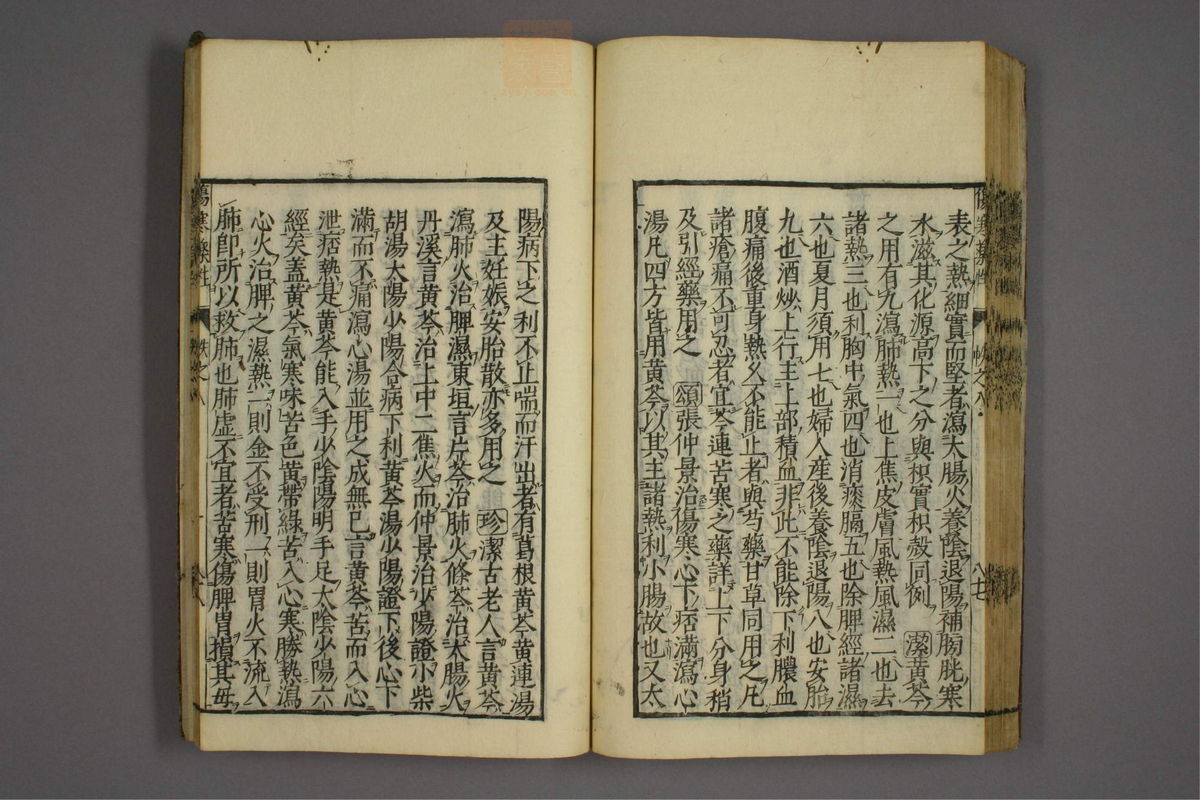 表之熱細實而堅者瀉大腸火養陰退陽補膀胱寒
水滋其化源高下之分與枳實枳殼同例 潔黃芩
之用有九瀉肺熱一也上焦皮膚風熱風濕二也去
諸熱三也利胸中氣四也消痰膈五也除脾經諸濕
六也夏月須用七也婦人産後養陰退陽八也安胎
九也酒炒上行主上部積血非此不能除下利膿血
腹痛後重身熱久不能止者與芍藥甘草同用之凡
諸瘡痛不可忍者宜芩連苦寒之藥詳上下分身稍
及引經藥用之 頌張仲景治傷寒心下痞滿瀉心
湯凡四方皆用黃芩以其主諸熱利小腸故也又太
八十七
陽病下之利不止喘而汗出者有葛根黃芩黃連湯
及主妊娠安胎散亦多用之 珍潔古老人言黃芩
瀉肺火治脾濕東垣言片芩治肺火條芩治大腸火
丹溪言黃芩治上中二焦火而仲景治少陽證小柴
胡湯太陽少陽合病下利黃芩湯少陽證下後心下
滿而不痛瀉心湯並用之成無已言黃芩苦而入心
泄痞熱是黃芩能入手少陰陽明手足太陰少陽六
經矣蓋黃芩氣寒味苦色黃帶綠苦入心寒勝熱瀉
心火治脾之濕熱一則金不受刑一則胃火不流入
肺即所以救肺也肺虛不宜者苦寒傷脾胃損其母